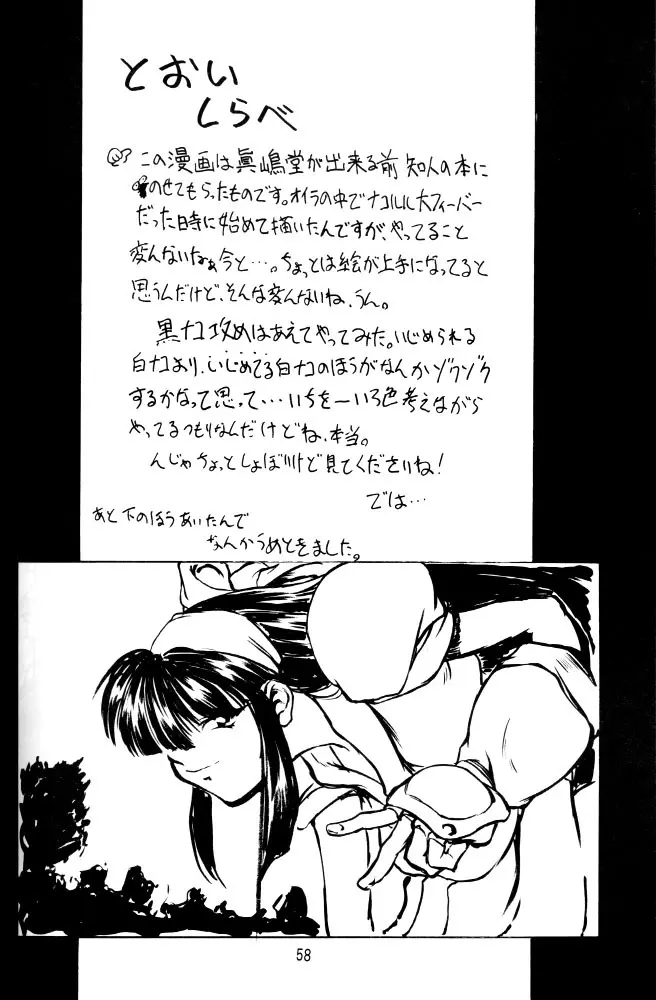 とおい
しらべ
この漫画は眞嶋堂が出来る前 知人の本に
のせてもらったものです。オイラの中でナコルル大フィーバー
だった時に始めて描いたんですが、やってること
変んないなぁ今と…。ちょっとは絵が上手になってると
思うんだけど、そんな変んないね、うん。
黒ナコ攻めはあえてやってみた。いじめられる
白ナコより、いじめてる白ナコのほうがなんかゾクゾク
するかなって思って…いちを〜いろ色考えながら
やってるつもりなんだけどね、本当。
んじゃちょっとしょぼいけど見てくださいね!
では…
あと下のほうあいたんで
なんかうめときました。
58